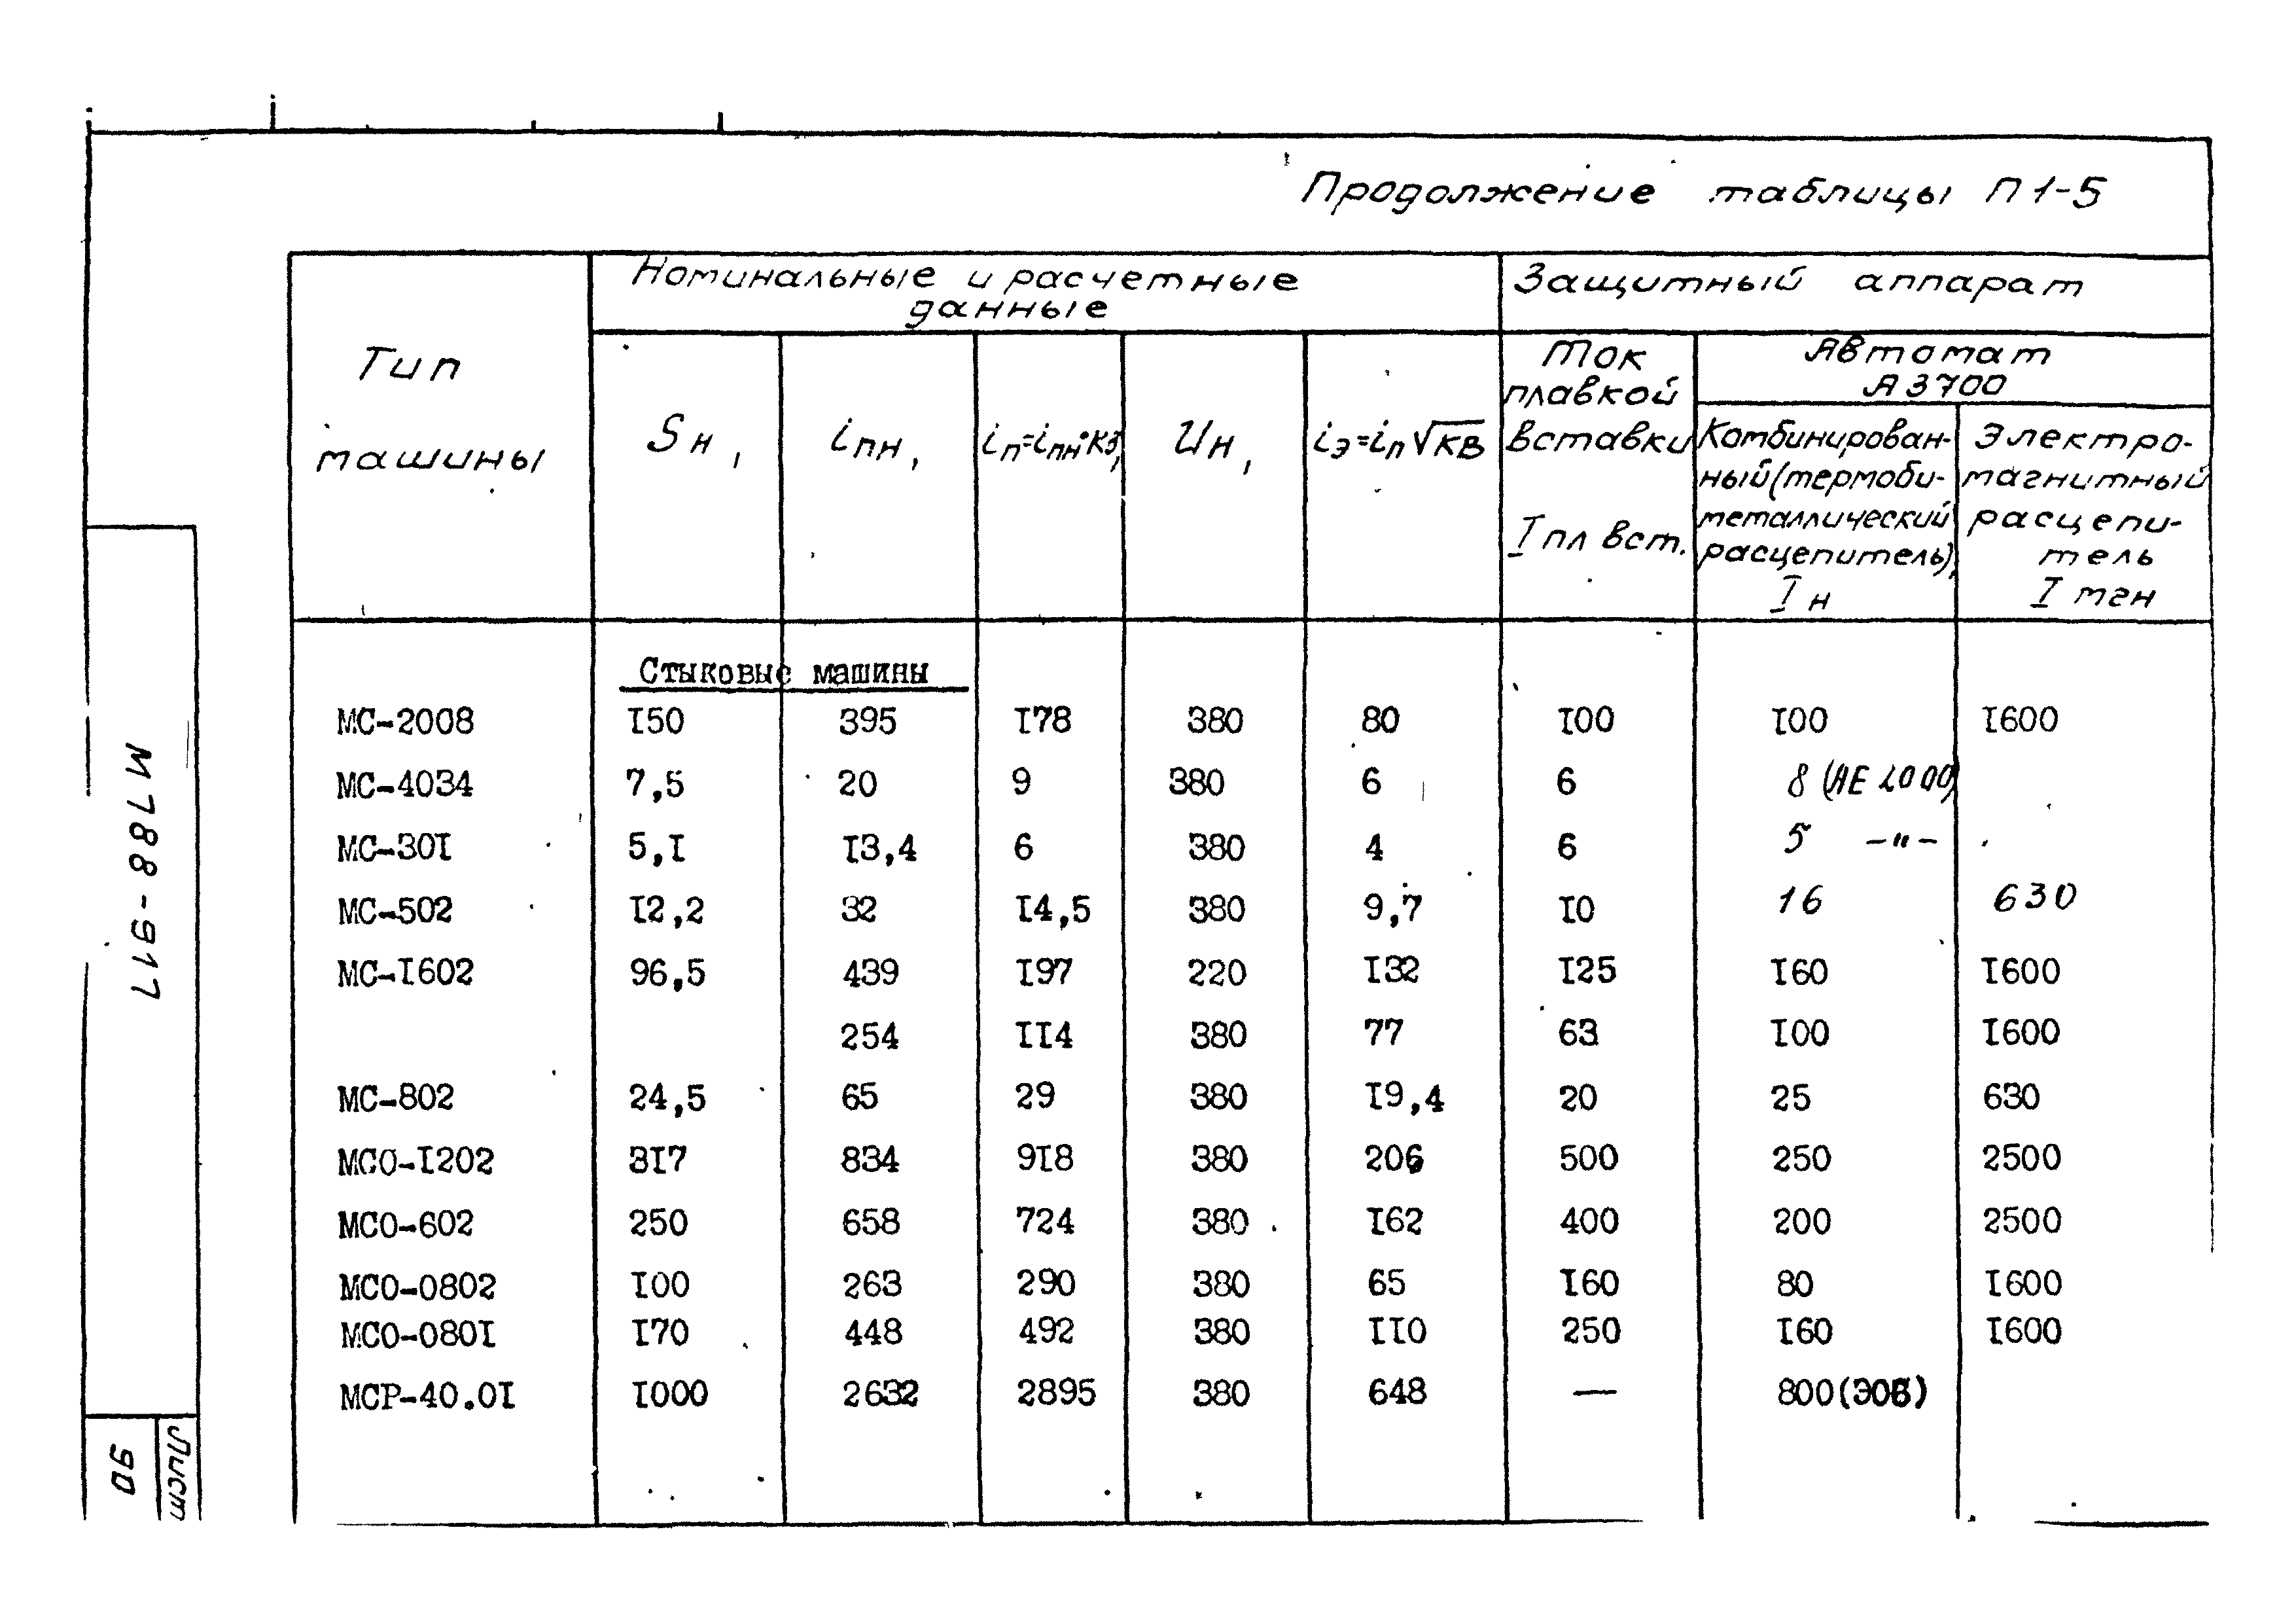 Продолжение таблицы П1-5
Тип машины
Номинальные и расчетные данные
Защитный аппарат
Sн,
iпн,
iп=iпн·Кз,
Uн,
iэ=iп√КВ
Ток плавкой вставки
I пл вст.
Автомат А3700
Комбинирован-
ный (термоби-
металлический
расцепитель),
I н
Электро-
магнитный
расцепи-
тель
I мгн
Стыковые машины
МС-2008 I50 395 I78 380 80 I00 I00 I600
МС-4034 7,5 20 9 380 6 6 8 (АЕ 2000)
МС-30I 5,I I3,4 6 380 4 6 5 -"-
МС-502 I2,2 32 I4,5 380 9,7 I0 16 630
МС-I602 96,5 439 I97 220 I32 I25 I60 I600
254 II4 380 77 63 I00 I600
МС-802 24,5 65 29 380 I9,4 20 25 630
МСО-I202 3I7 834 9I8 380 206 500 250 2500
МСО-602 250 658 724 380 I62 400 200 2500
МСО-0802 I00 263 290 380 65 I60 80 I600
МСО-080I I70 448 492 380 II0 250 I60 I600
МСР-40.0I I000 2632 2895 380 648 — 800(ЭОВ)
М788-917
Лист
90